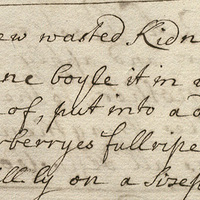 ew wasted Kidn
ne boyle it in
of, put into a
berryes full ripe
lly on a